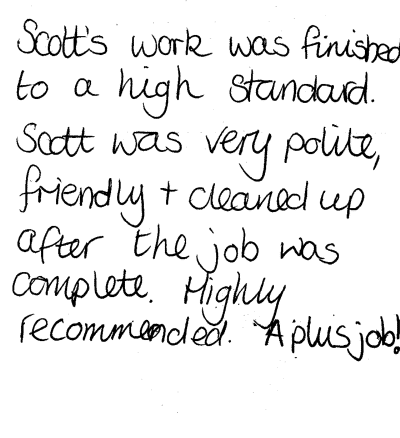 Scott's work was finished
to a high standard.
Scott was very polite,
friendly + cleaned up
after the job was
complete. Highly
recommended. A plus job!